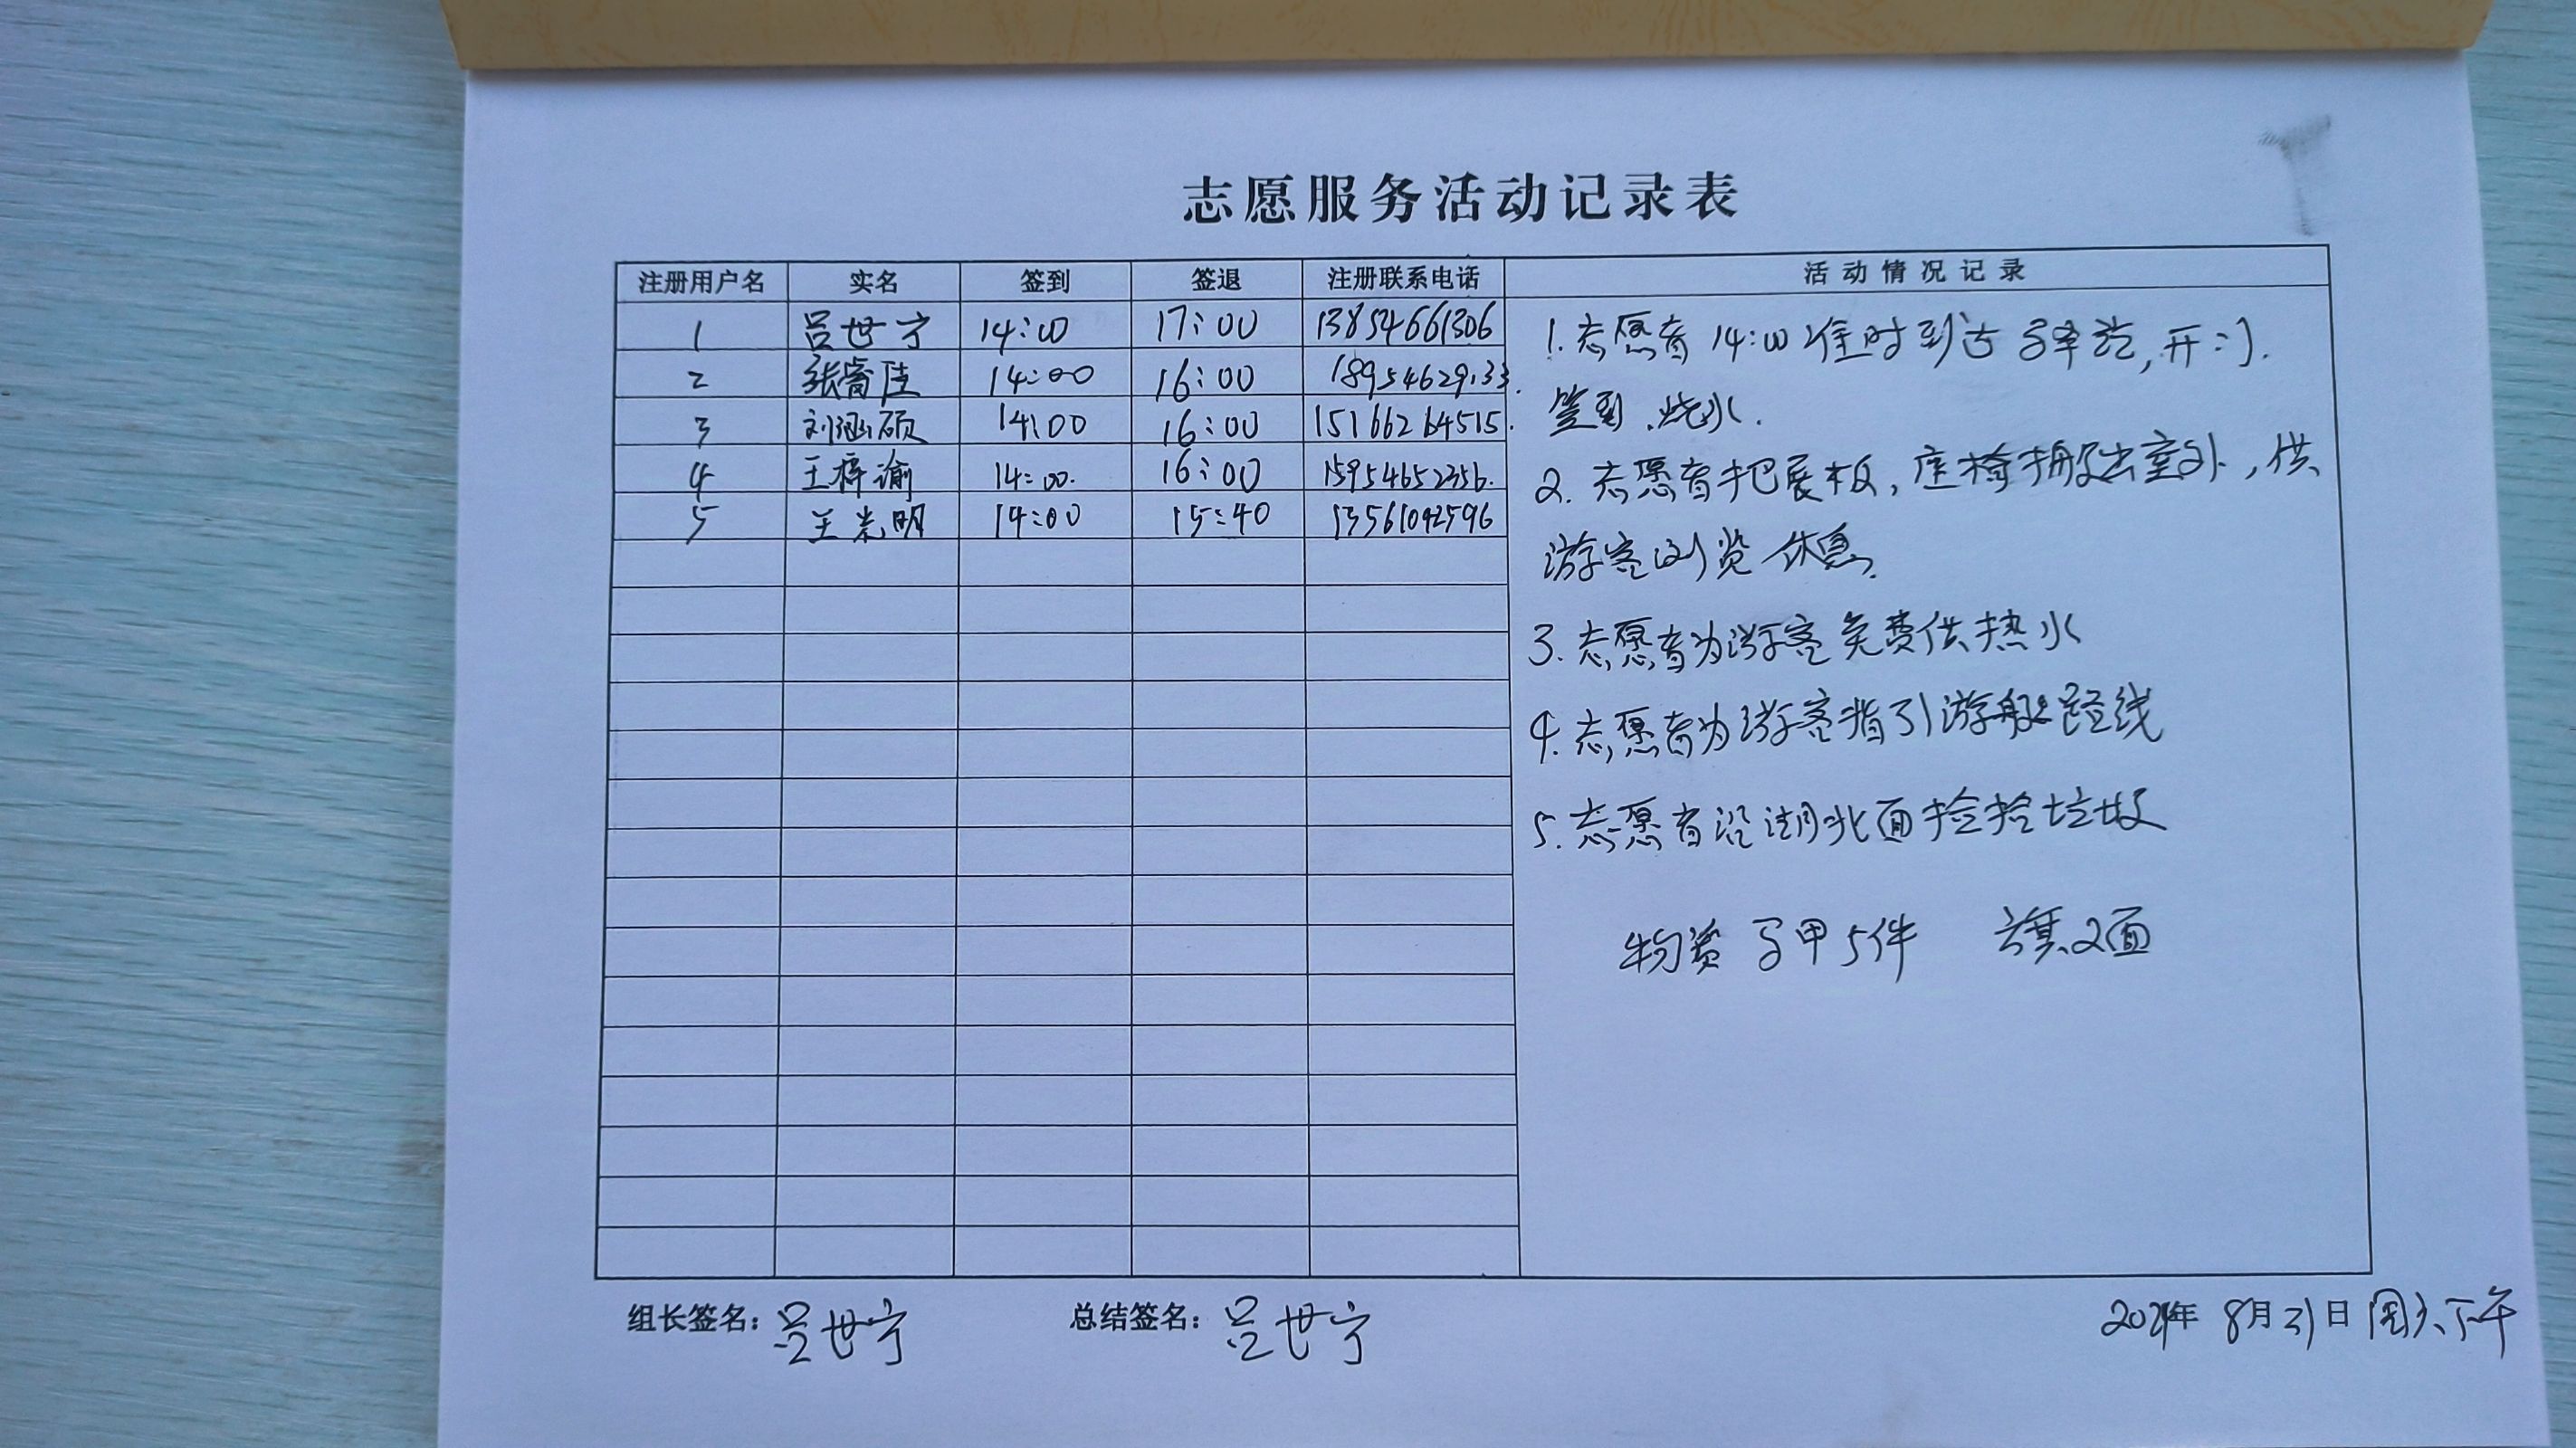 志愿服务活动记录表
注册用户名 实名 签到 签退 注册联系电话 活动情况记录
1 吕世宁 14:00 17:00 13854661306
2 张睿 14:00 16:00
3 刘涵硕 14:00 16:00 15166264515
4 王梓谕 14:00 16:00 15954652356
5 王崇明 14:00 15:40 13561042596
1.志愿者14:00准时到达驿站,开门.
签到.烧水.
2.志愿者把展板,座椅搬出室外,供
游客浏览休息.
3.志愿者为游客免费供热水
4.志愿者为游客指引游艇路线
5.志愿者沿湖北面捡拾垃圾
物资 马甲5件 旗2面
组长签名: 吕世宁 总结签名: 吕世宁 2024年8月31日周六下午